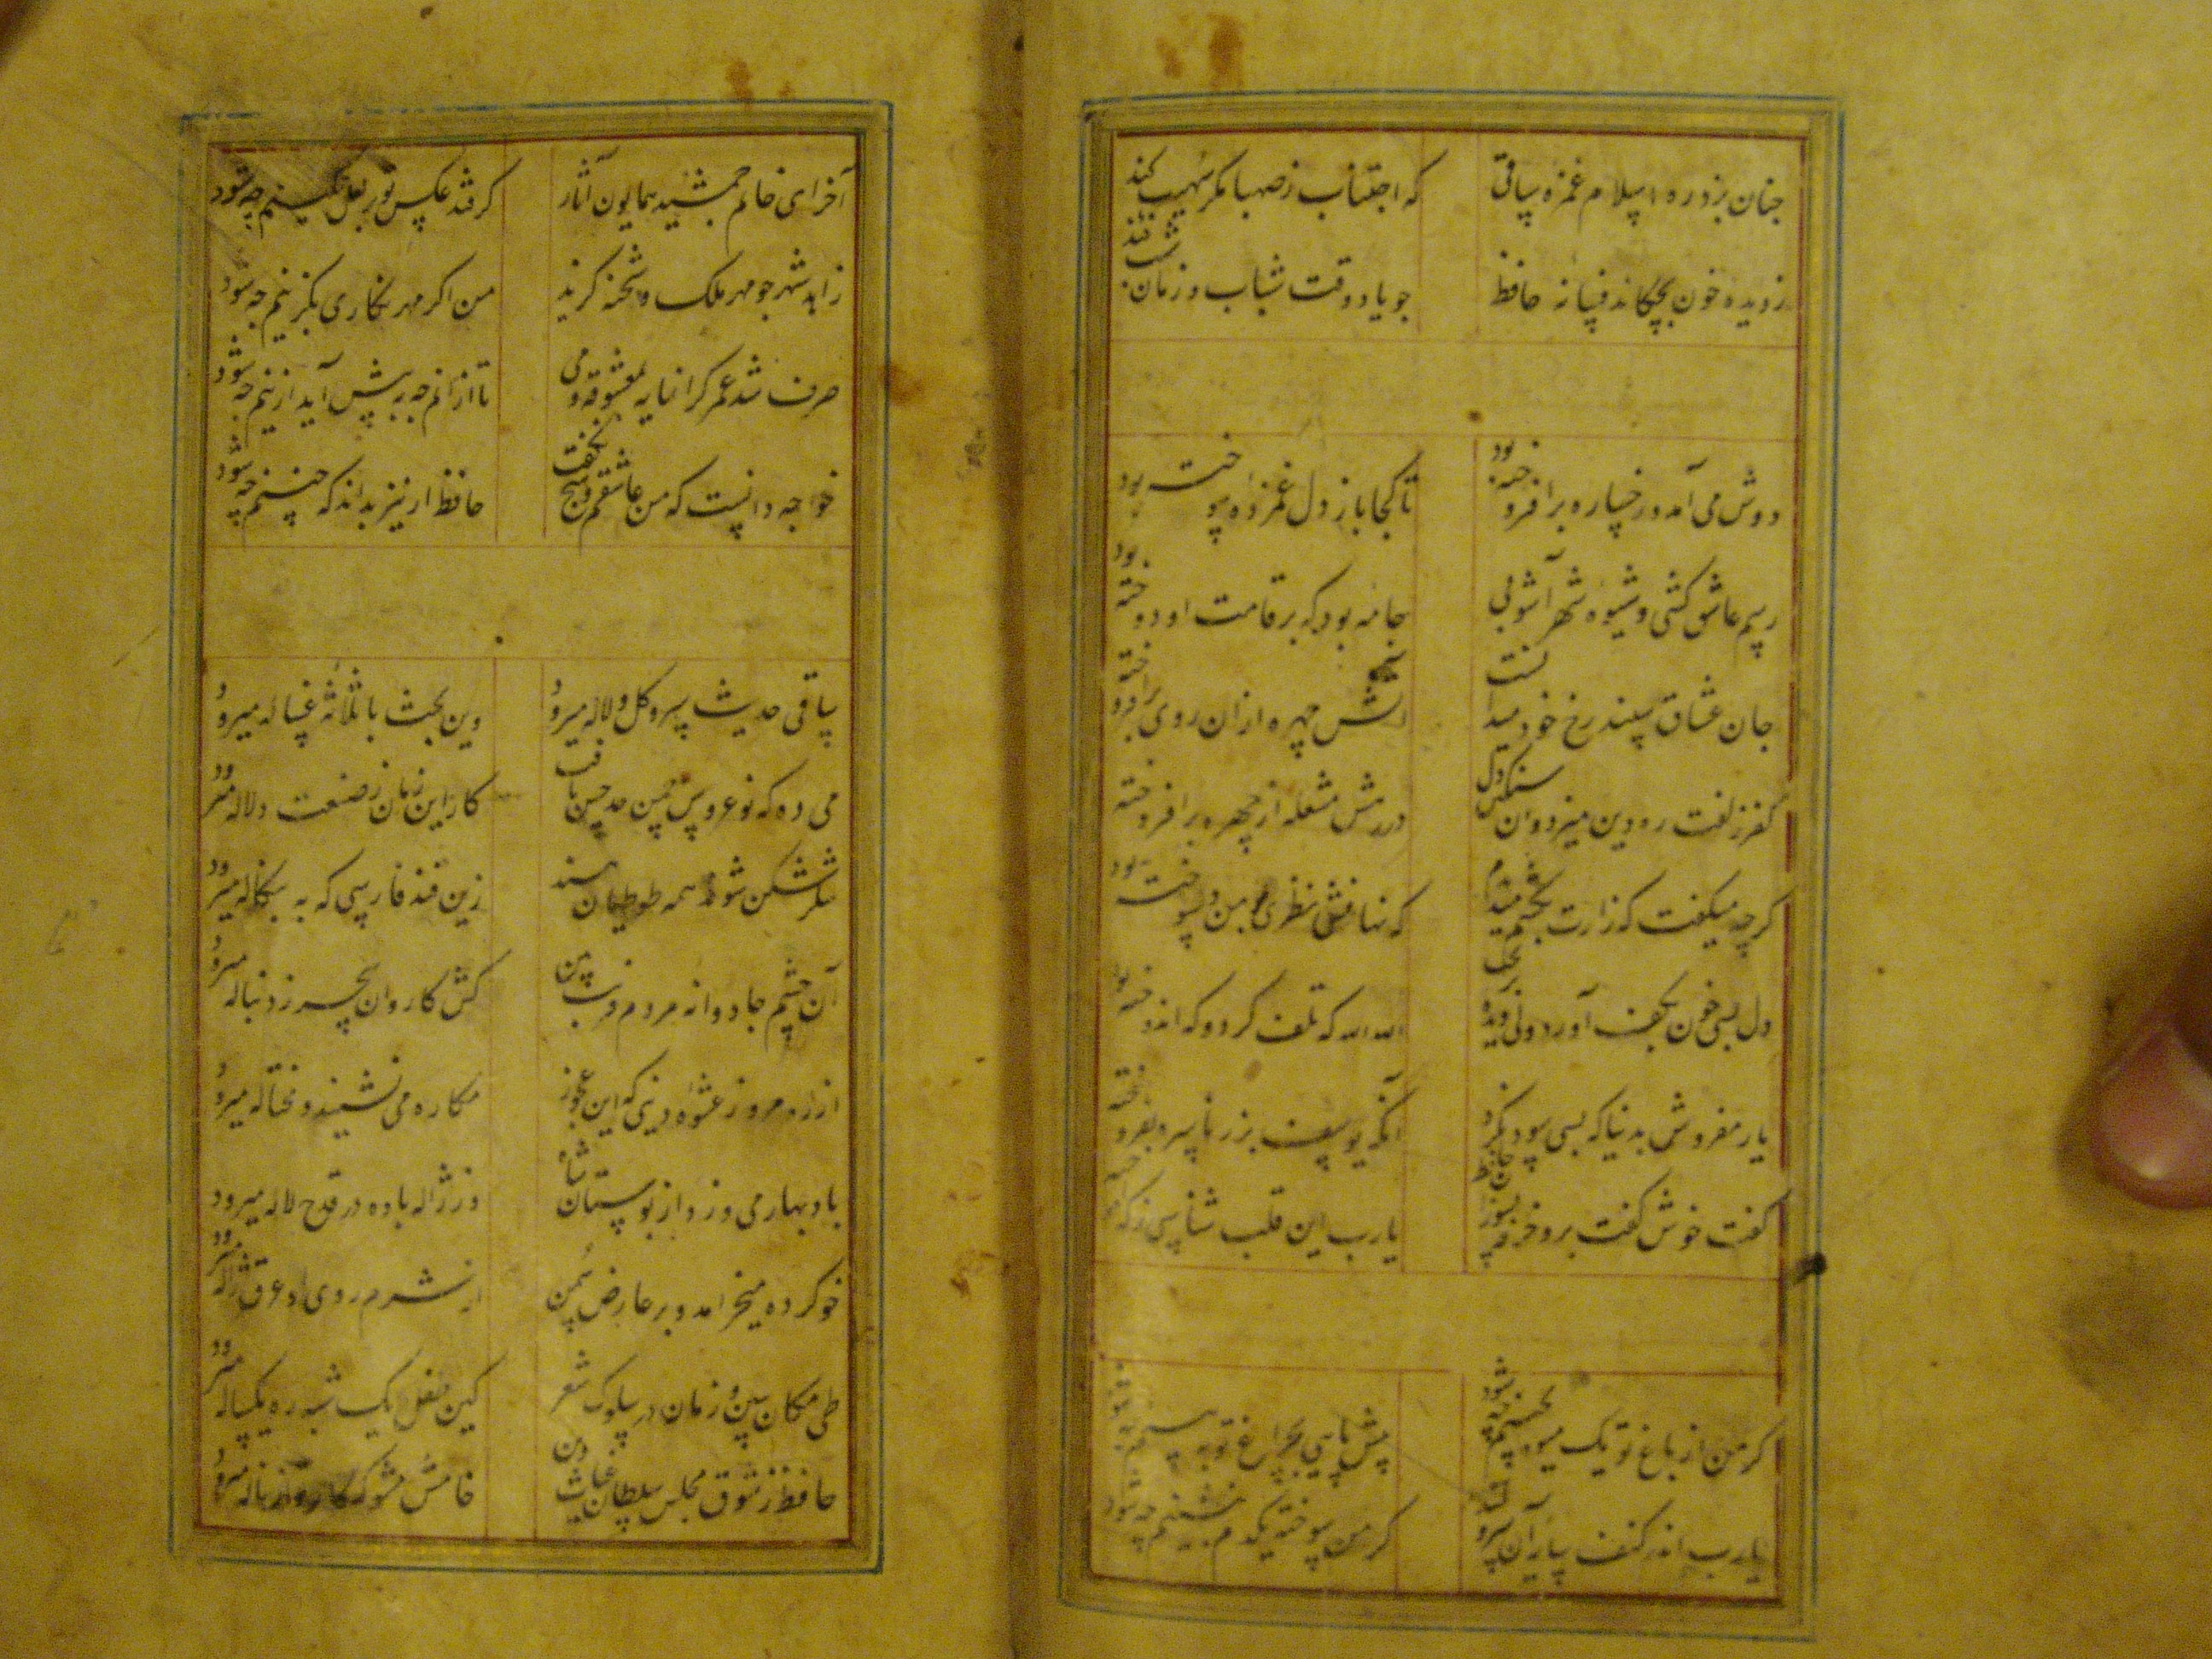 جنان بزد ره اسلام غمزه ساقی که اجتناب زصهبا مکر صهیب کند
زدیده خون بچکاند فسانه حافظ جو یاد وقت شباب و زمان شیب کند
دوش می آمد و رخساره برافروخته بود تا کجا باز دل غمزده سوخته بود
رسم عاشق کشی و شیوه شهر آشوبی جامه بود که بر قامت او دوخته بود
جان عشاق سپند رخ خود میدانست آتش چهره ازان روی برافروخته
کفر زلفت ره دین میزد وان سنکین دل در رهش مشعله از چهره برافروخته
کرچه میکفت که زارت بکشم میدیدم که نهانش نظری با من دلسوخته بود
دل بسی خون بکف آورد ولی دیده بریخت الله الله که تلف کرد و که اندوخته بود
یار مفروش بدنیا که بسی سود نکرد آنکه یوسف بزر ناسره بفروخته
کفت خوش کفت برو خرقه بسوزان حافظ یارب این قلب شناسی زکه
کر من از باغ تو یک میوه بچینم چه شود پیش پایی بچراغ تو ببینم چه شود
یارب اندر کنف سایه آن سرو بلند کر من سوخته یکدم بنشینم چه شود
آخر ای خاتم جمشید همایون آثار کر فتد عکس تو بر لعل نکینم چه شود
زاهد شهر جو مهر ملک و شحنه کزید من اکر مهر نکاری بکزینم چه شود
صرف شد عمر کرانمایه بمعشوقه و می تا از آنم چه به پیش آید ازینم چه شود
خواجه دانست که من عاشقم و هیچ نکفت حافظ ار نیز بداند که چنینم چه شود
ساقی حدیث سرو کل و لاله میرود وین بحث با ثلاثه غساله میرود
می ده که نوعروس چمن حد حسن یافت کار این زمان ز صنعت دلاله میرود
شکر شکن شوند همه طوطیان هند زین قند فارسی که به بنکاله میرود
آن چشم جادوانه مردم فریب بین کش کاروان سحر ز دنباله میرود
از ره مرو ز عشوه دنیی که این عجوز مکاره می نشیند و محتاله میرود
باد بهار می وزد از بوستان شاه وز ژاله باده در قدح لاله میرود
خوکرده میخرامد و بر عارض سمن از شرم روی او عرق ژاله میرود
طی مکان ببین و زمان در سلوک شعر کین طفل یک شبه ره یکساله میرود
حافظ ز شوق مجلس سلطان غیاث دین خامش مشو که کار تو از ناله میرود